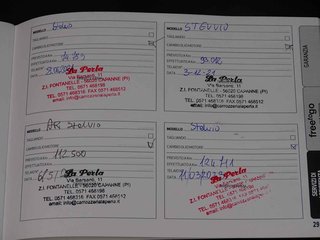 MODELLO Stelvio
TAGLIANDO
CAMBIO OLIO MOTORE
PREVISTO A Km
EFFETTUATO A Km
TELAIO N°
DATA
La Perla
Via Barsanti, 11
Z.I. FONTANELLE - 56020 CAPANNE (PI)
TEL. 0571 468316 FAX 0571 468512
email: info@carrozzerialaperla.it
MODELLO STELVIO
TAGLIANDO
CAMBIO OLIO MOTORE
PREVISTO A Km
EFFETTUATO A Km
TELAIO N°
DATA
La Perla
Via Barsanti, 11
Z.I. FONTANELLE - 56020 CAPANNE (PI)
TEL. 0571 468316 FAX 0571 468512
email: info@carrozzerialaperla.it
MODELLO AR Stelvio
TAGLIANDO
CAMBIO OLIO MOTORE
PREVISTO A Km
EFFETTUATO A Km 112.500
TELAIO N°
DATA
La Perla
Via Barsanti, 11
Z.I. FONTANELLE - 56020 CAPANNE (PI)
TEL. 0571 468316
Fax 0571 468512
email: info@carrozzerialaperla.it
MODELLO Stelvio
TAGLIANDO
CAMBIO OLIO MOTORE
PREVISTO A Km
EFFETTUATO A Km 124711
TELAIO N°
DATA
La Perla
Via Barsanti, 11
Z.I. FONTANELLE - 56020 CAPANNE (PI)
TEL. 0571 468316
Fax 0571 468512
email: info@carrozzerialaperla.it
GARANZIA
freetogo
SERVIZI DI
29